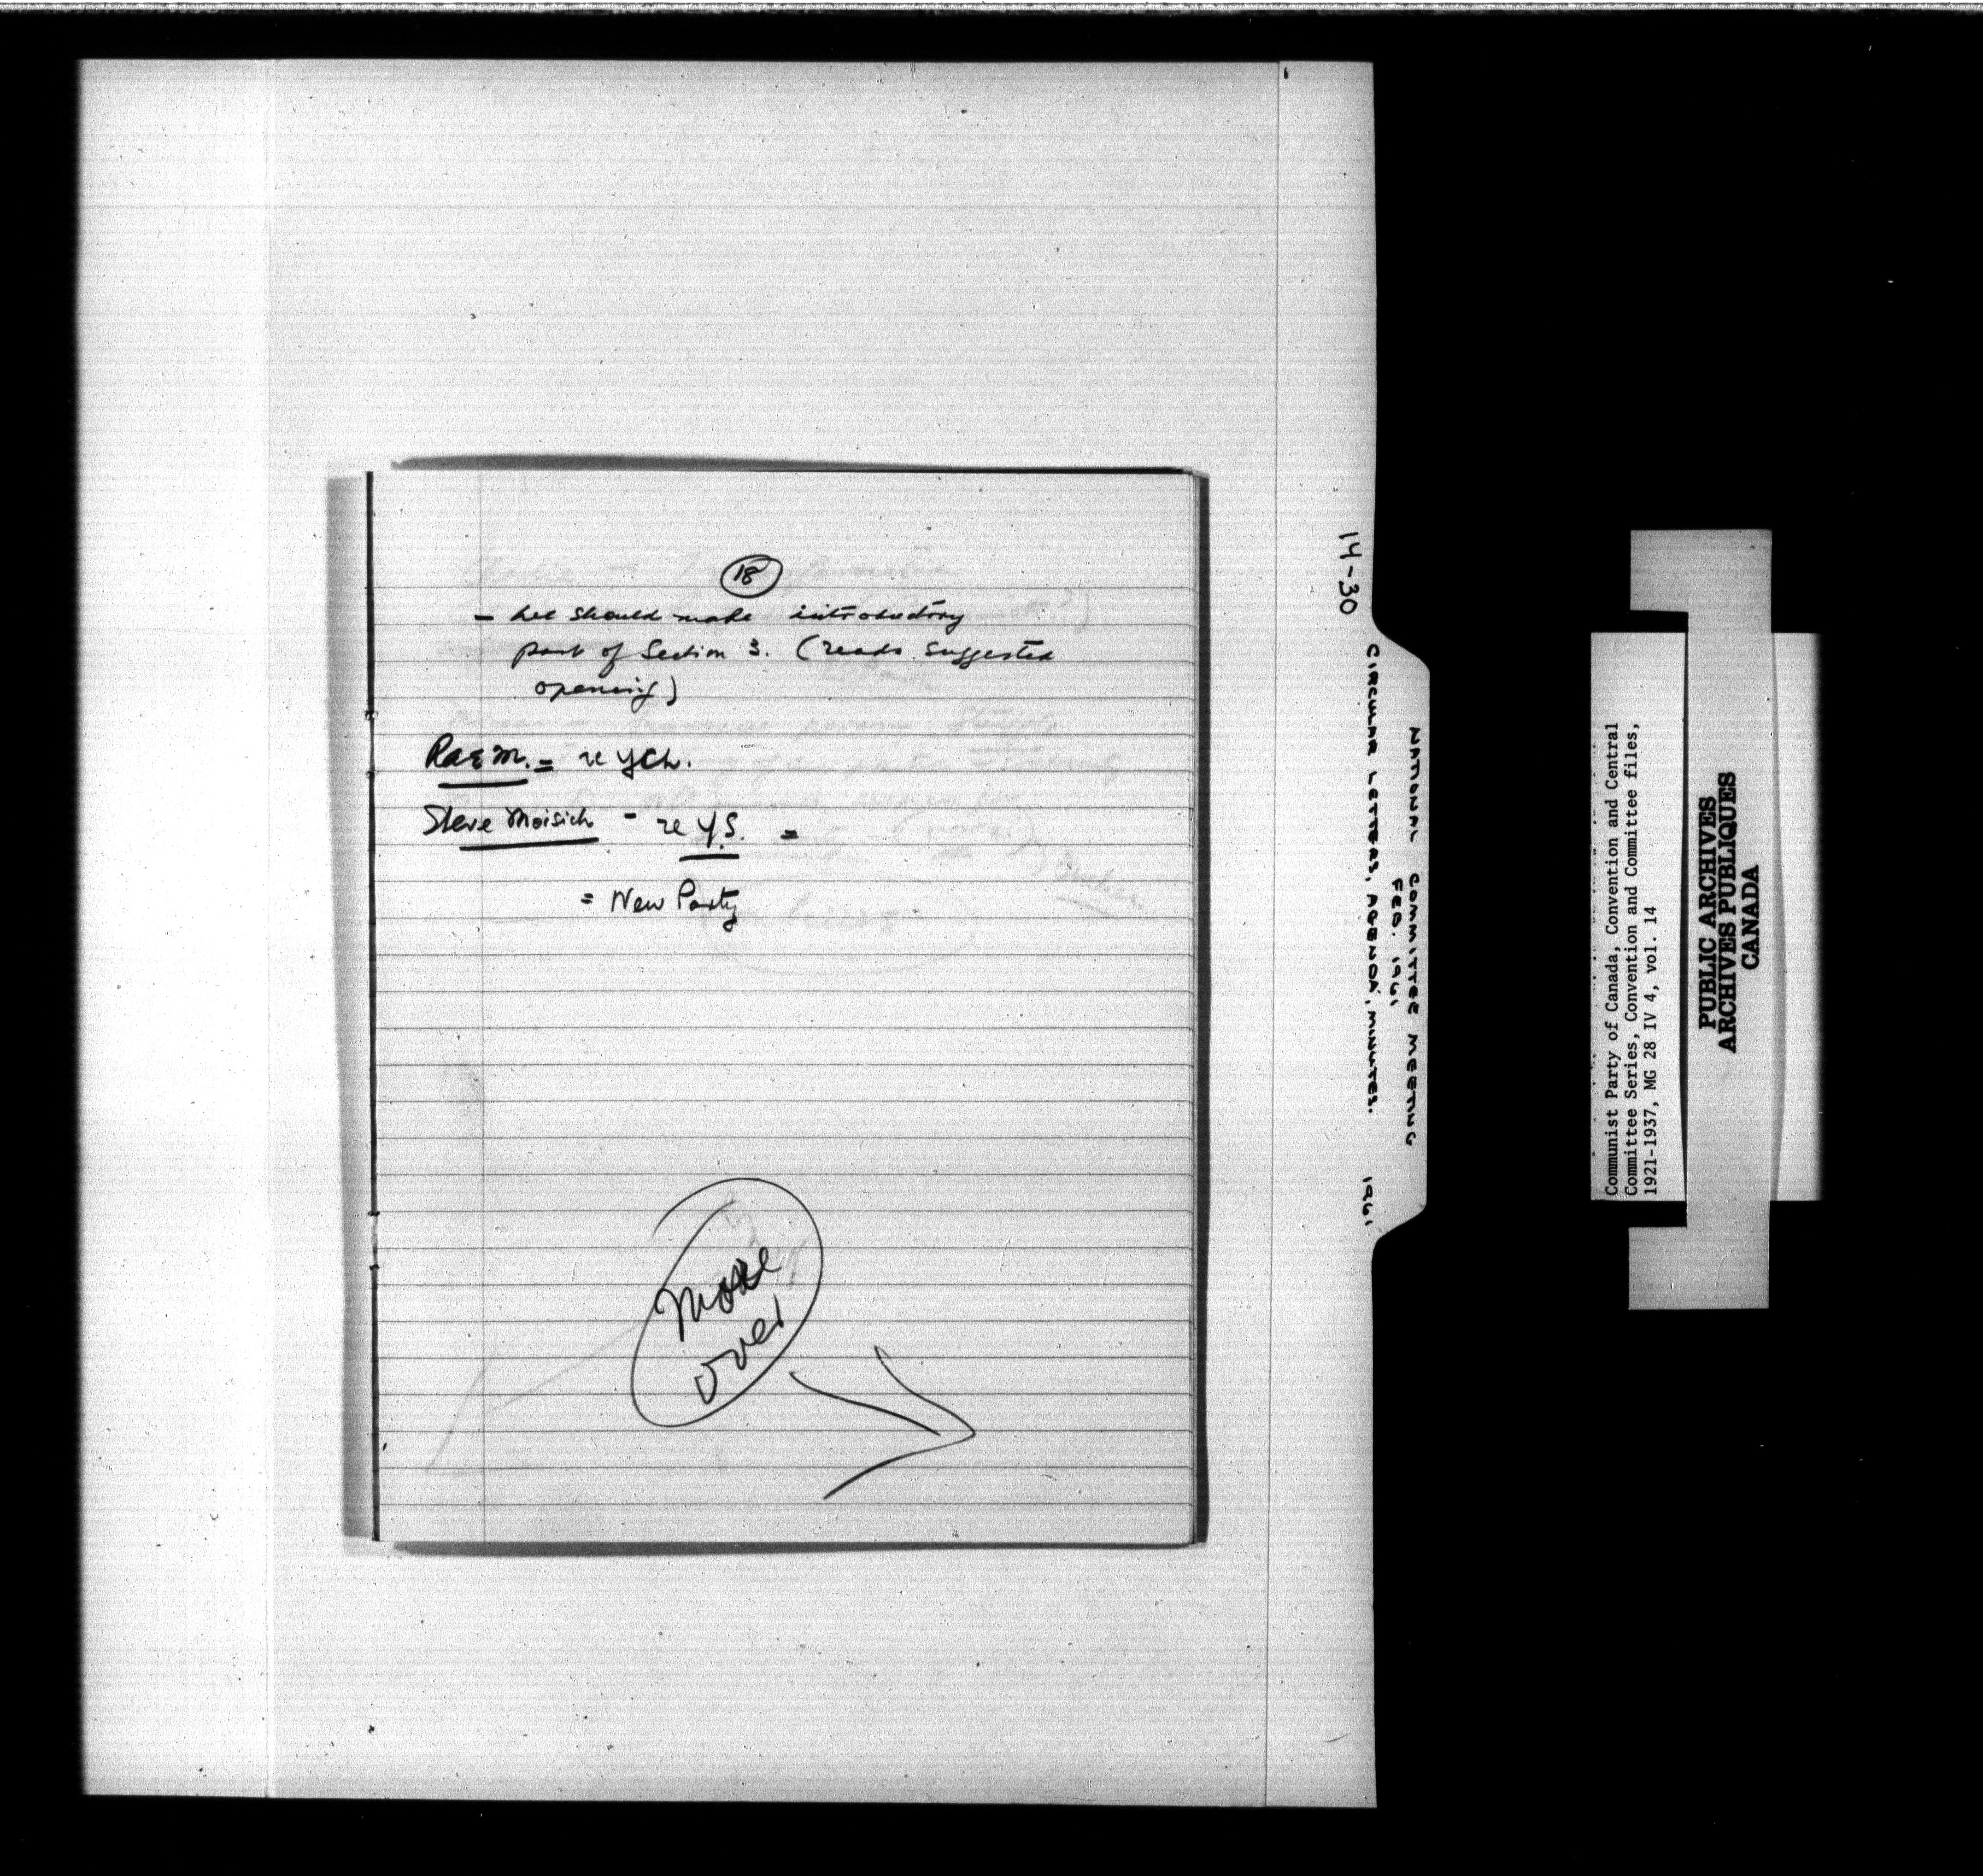 18
- should make introductory
part of Section 3. (reads suggested
opening)
Rae M. = re YCL.
Steve Moisich - re Y.S. =
= New Party
more
over
14-30
CIRCULAR LETTERS, AGENDA, MINUTES. 1961
NATIONAL COMMITTEE MEETING
FEB. 1961
Communist Party of Canada, Convention and Central
Committee Series, Convention and Committee files,
1921-1937, MG 28 IV 4, vol. 14
PUBLIC ARCHIVES
ARCHIVES PUBLIQUES
CANADA